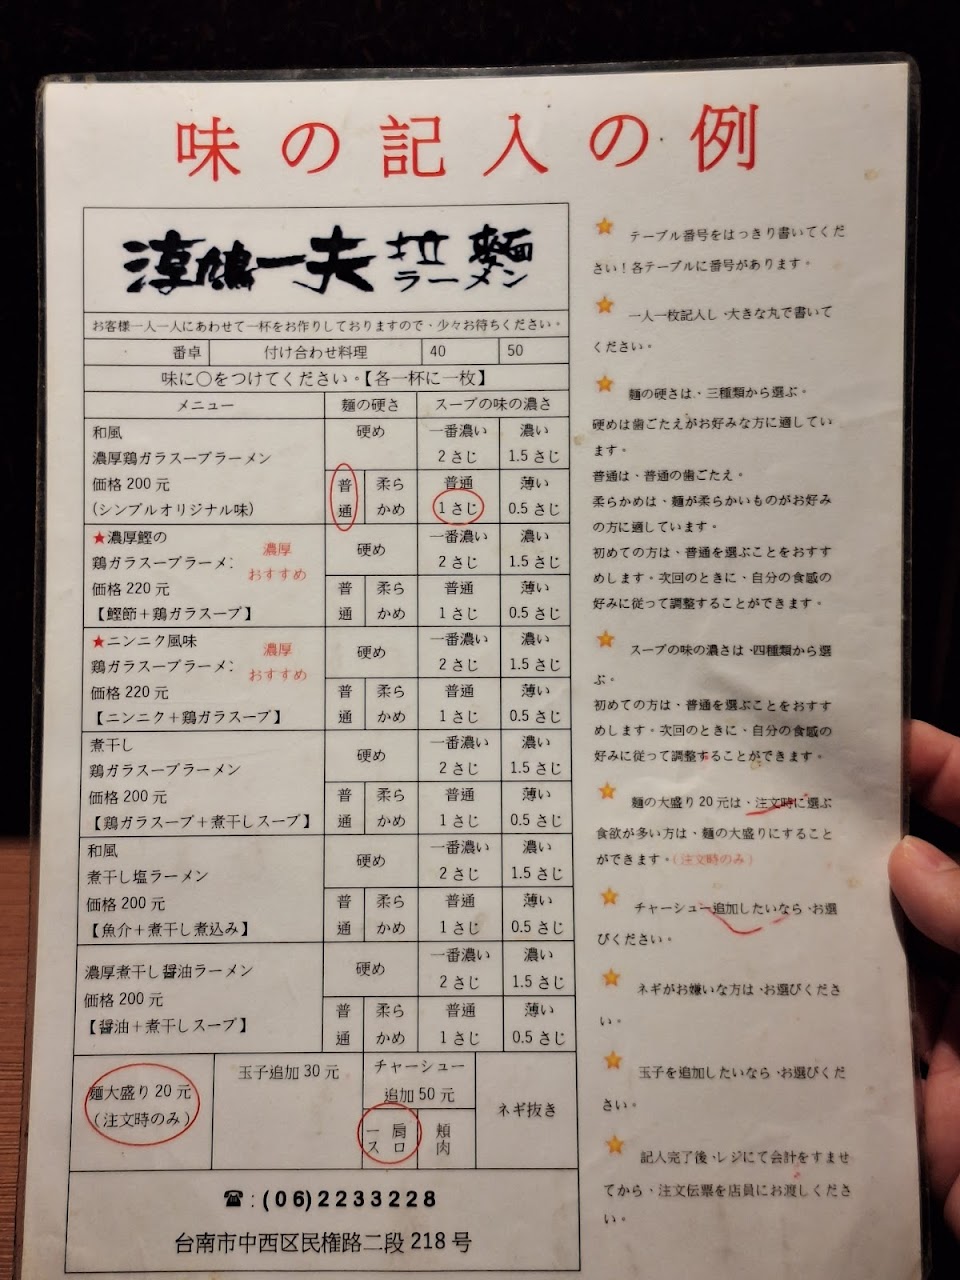 味の記入の例
淳鳩一夫 拉麺
ラーメン
お客様一人一人にあわせて一杯をお作りしておりますので、少々お待ちください。
番卓 付け合わせ料理 40 50
味に〇をつけてください。【各一杯に一枚】
メニュー 麺の硬さ スープの味の濃さ
和風
濃厚鶏ガラスープラーメン
価格 200 元
(シンプルオリジナル味)
硬め 一番濃い 濃い
2 さじ 1.5 さじ
普通 柔らかめ 普通 薄い
1 さじ 0.5 さじ
★濃厚鰹の
鶏ガラスープラーメン
価格 220 元
【鰹節＋鶏ガラスープ】
濃厚
おすすめ
硬め 一番濃い 濃い
2 さじ 1.5 さじ
普通 柔らかめ 普通 薄い
1 さじ 0.5 さじ
★ニンニク風味
鶏ガラスープラーメン
価格 220 元
【ニンニク＋鶏ガラスープ】
濃厚
おすすめ
硬め 一番濃い 濃い
2 さじ 1.5 さじ
普通 柔らかめ 普通 薄い
1 さじ 0.5 さじ
煮干し
鶏ガラスープラーメン
価格 200 元
【鶏ガラスープ＋煮干しスープ】
硬め 一番濃い 濃い
2 さじ 1.5 さじ
普通 柔らかめ 普通 薄い
1 さじ 0.5 さじ
和風
煮干し塩ラーメン
価格 200 元
【魚介＋煮干し煮込み】
硬め 一番濃い 濃い
2 さじ 1.5 さじ
普通 柔らかめ 普通 薄い
1 さじ 0.5 さじ
濃厚煮干し醤油ラーメン
価格 200 元
【醤油＋煮干しスープ】
硬め 一番濃い 濃い
2 さじ 1.5 さじ
普通 柔らかめ 普通 薄い
1 さじ 0.5 さじ
麺大盛り 20 元
(注文時のみ)
玉子追加 30 元
チャーシュー
追加 50 元
肩ロース 頬肉
ネギ抜き
☎：(06)2233228
台南市中西区民権路二段 218 号
テーブル番号をはっきり書いてくだ
さい！各テーブルに番号があります。
一人一枚記入し、大きな丸で書いて
ください。
麺の硬さは、三種類から選ぶ。
硬めは歯ごたえがお好みな方に適してい
ます。
普通は、普通の歯ごたえ。
柔らかめは、麺が柔らかいものがお好み
の方に適しています。
初めての方は、普通を選ぶことをおすす
めします。次回のときに、自分の食感の
好みに従って調整することができます。
スープの味の濃さは、四種類から選
ぶ。
初めての方は、普通を選ぶことをおすす
めします。次回のときに、自分の食感の
好みに従って調整することができます。
麺の大盛り 20 元は、注文時に選ぶ
食欲が多い方は、麺の大盛りにすること
ができます。(注文時のみ)
チャーシュー追加したいなら、お選
びください。
ネギがお嫌いな方は、お選びくださ
い。
玉子を追加したいなら、お選びくだ
さい。
記入完了後、レジにて会計をすませ
てから、注文伝票を店員にお渡しくださ
い。